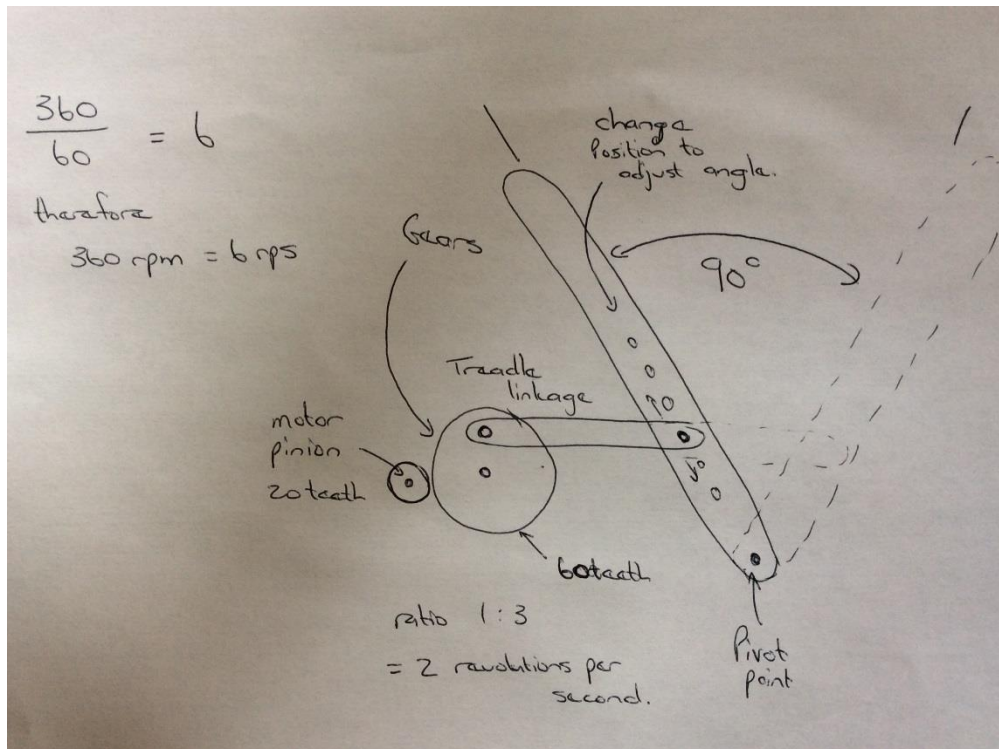 360
60
= 6
therefore
360 rpm = 6 rps
Gears
change
Position to
adjust angle.
90°
Treadle
linkage
motor
pinion
20 teeth
60 teeth
ratio 1:3
= 2 revolutions per
second.
Pivot
point